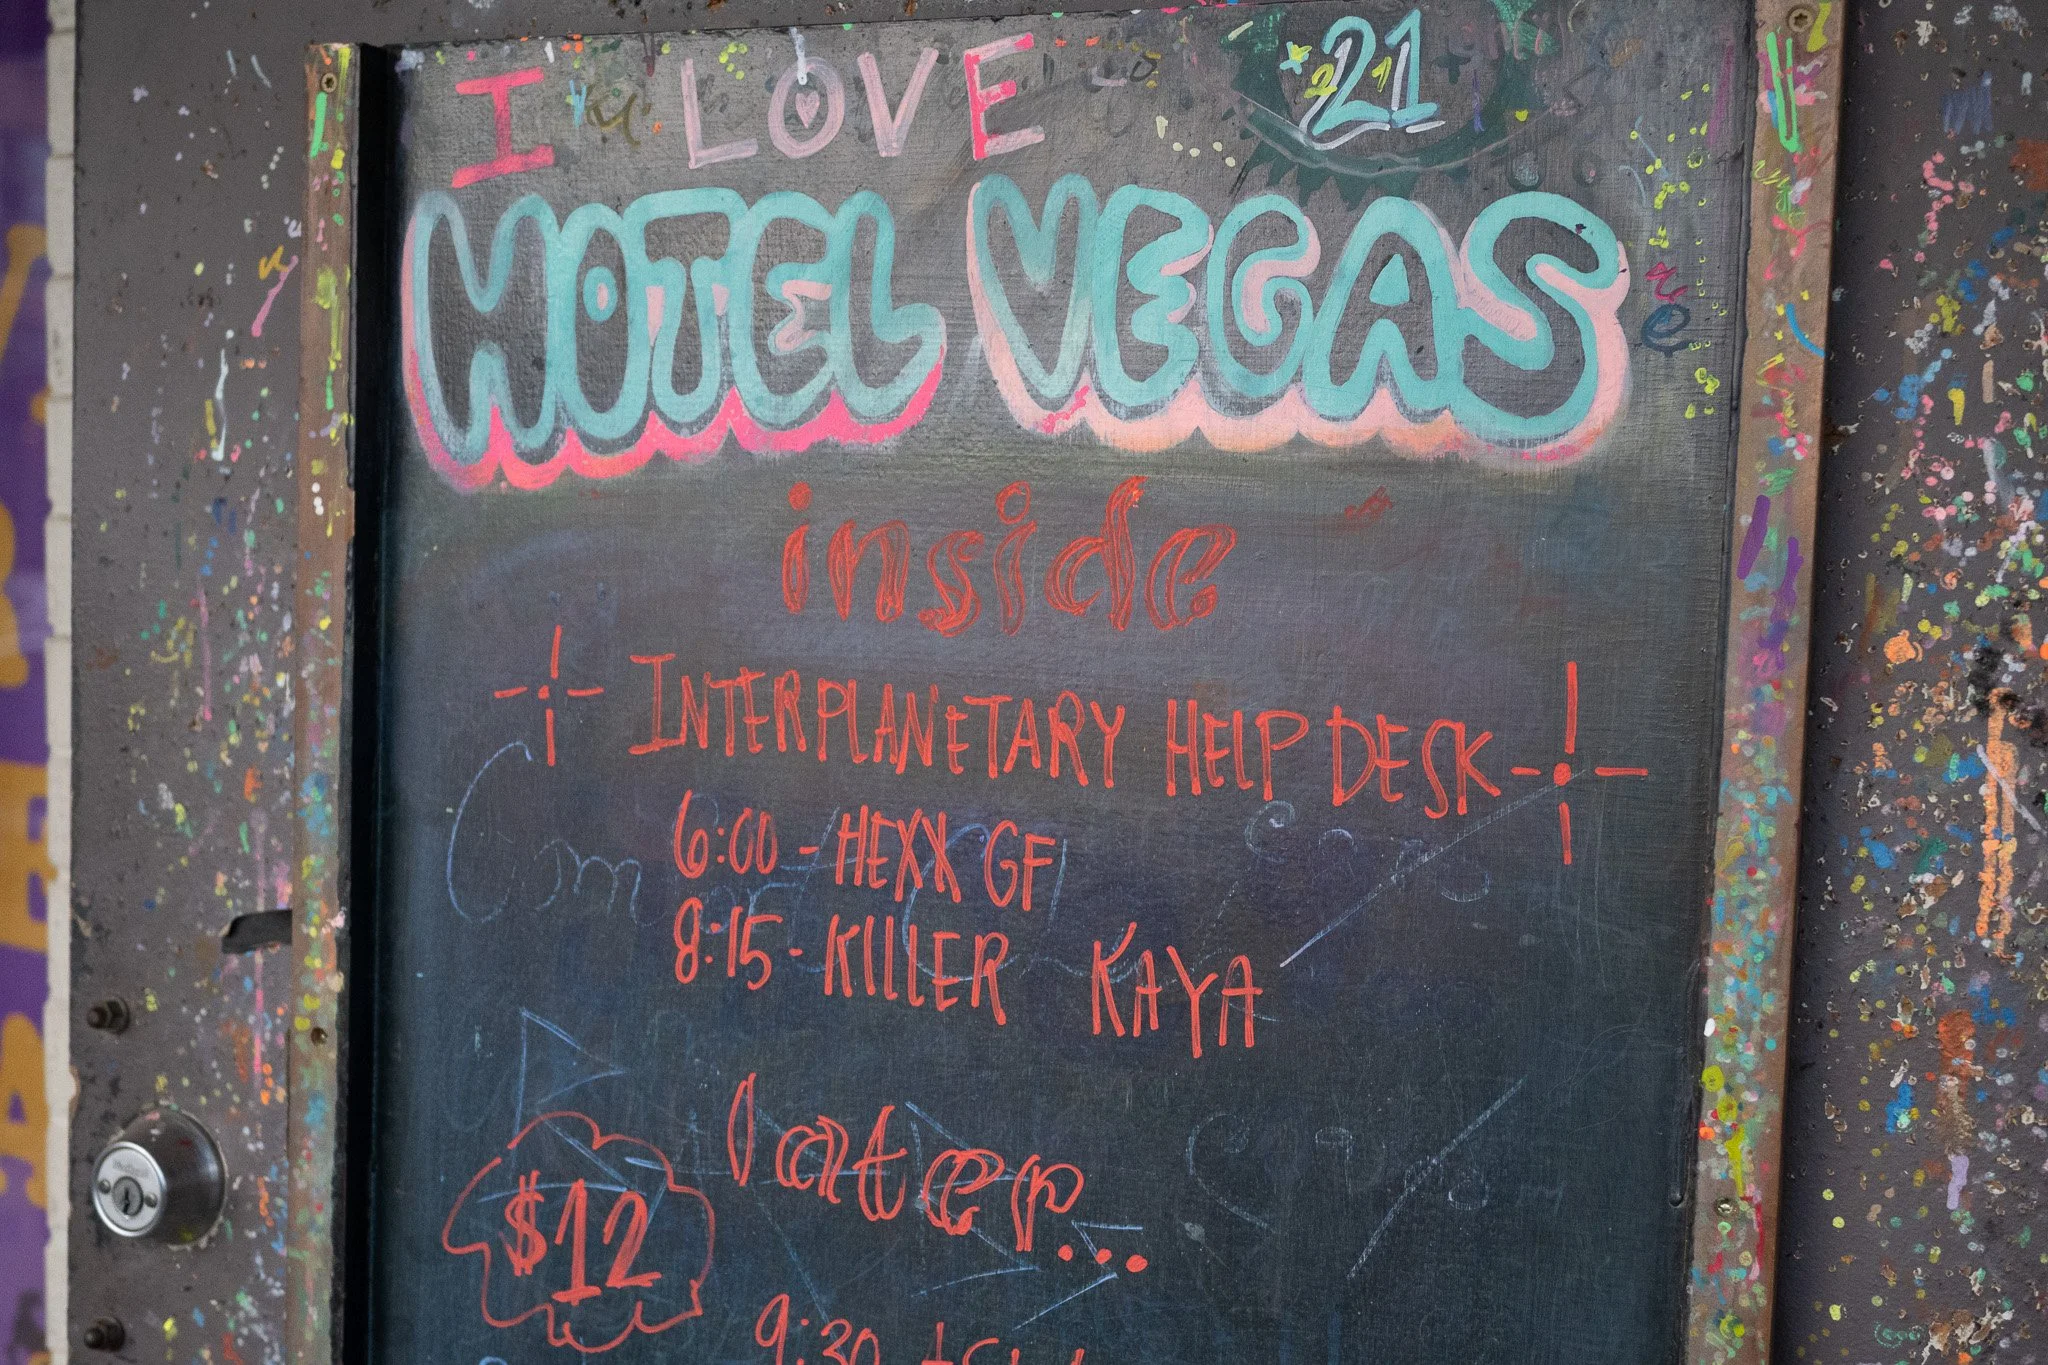 I LOVE
21
HOTEL VEGAS
inside
INTERPLANETARY HELP DESK
6:00 - HEXX GF
8:15 - KILLER KAYA
later...
$12
9:30